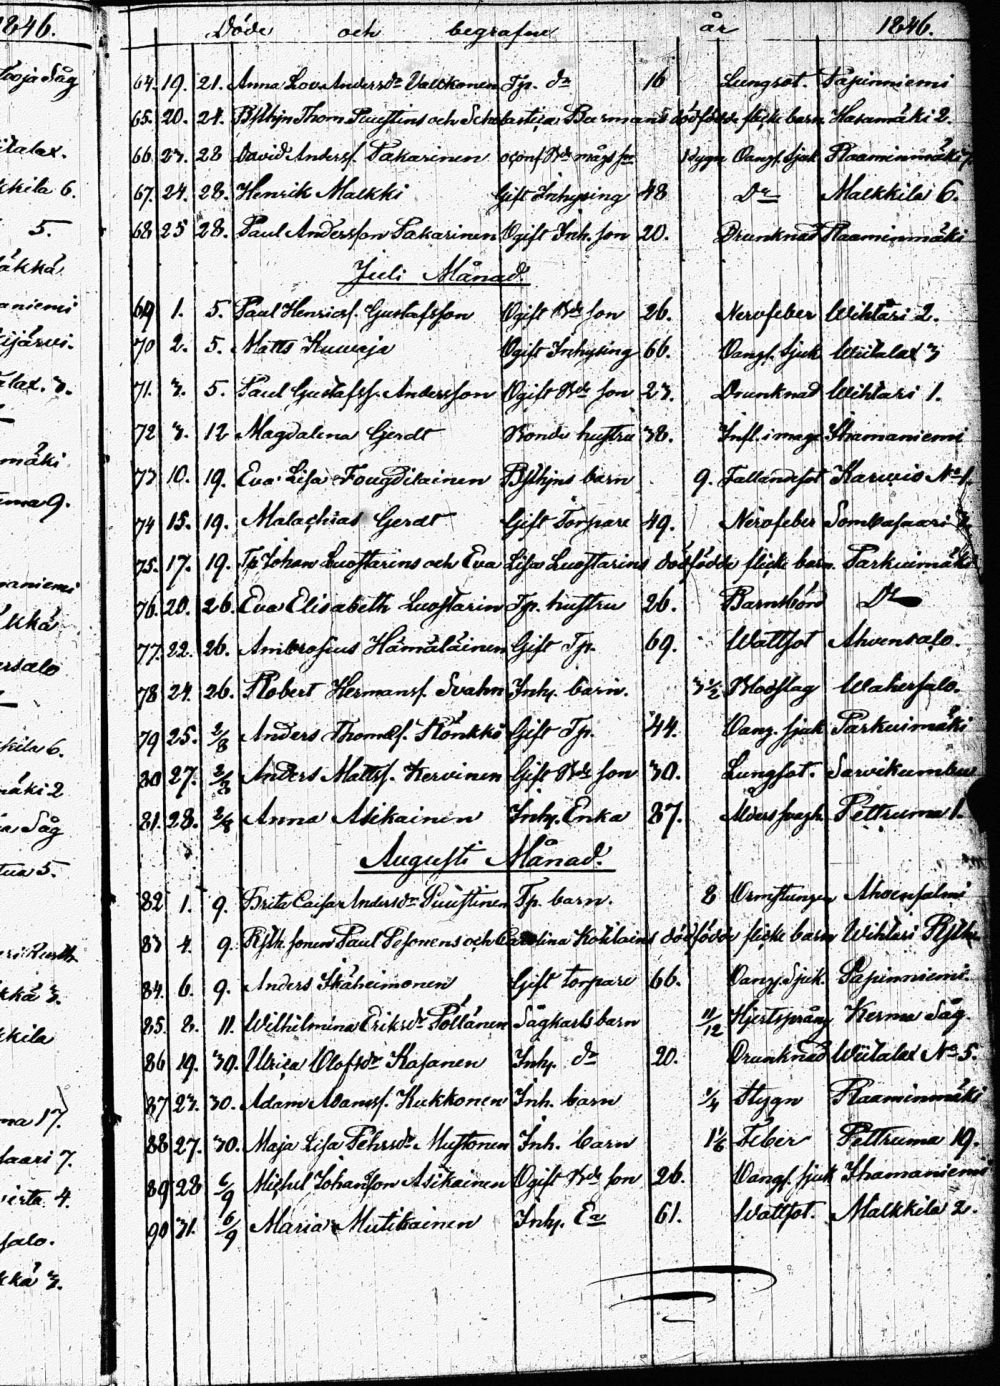 1846.
Döde och begrafne år 1846.
64. 19. 21. Anna Lova Andersdr Valkonen Tp. dr 16 Lungsot. Papinniemi
65. 20. 24. Bysthjn Thom Puustins och Scholastica Barmans dödfödde flicke barn Hasamäki 2.
66. 23. 28 David Andersf. Pakarinen Oconf. Bde mågs son Stygn Oangf. sjuk Raaminmäki
67. 24. 28. Henrik Malkki Gift Inhysing 48 Do Malkkila 6.
68 25 28. Paul Andersson Pakarinen Ogift Inh. son 20. Drunknad Raaminmäki
Juli Månad.
69 1. 5. Paul Henricsf. Gustafsson Ogift Bde son 26. Nervfeber Wihtari 2.
70 2. 5. Matts Kuwaja Ogift Inhysing 66. Oangf. sjuk Wiitalax 3
71. 3. 5. Paul Gustafsf. Andersson Ogift Bde son 23. Drunknad Wihtari 1.
72 3. 12 Magdalena Gerdt Bonde hustru 38. Infl. i mage Ihamaniemi
73 10. 19. Eva Lisa Fougdilainen Bysthjns barn 9. Fallandesot Karwio No 1.
74 15. 19. Malachias Gerdt Gift Torpare 49. Nervfeber Sombasaari
75. 17. 19. Tp Johan Luostarins och Eva Lisa Luostarins dödfödde flicke barn Parkuimäki
76. 20. 26. Eva Elisabeth Luostarin Tp. hustru 26. Barnsbörd Do
77. 22. 26. Ambrosius Hämäläinen Gift Tp. 69. Wattsot Ahvensalo.
78 24. 26. Robert Hermansf. Svahn Inhy. barn. 3 1/2 Blodslag Wahersalo.
79 25. 2/8 Anders Thomasf. Rönkkö Gift Tp. 44. Oang. sjuk Parkuimäki
80 27. 2/8 Anders Mattsf. Kervinen Gift Bde son 30. Lungsot. Sarvikumbu
81. 28. 2/8 Anna Asikainen Inhy. Enka 87. Ålders svagh. Pettruma 1.
Augusti Månad.
82 1. 9. Brita Caisa Andersdr Puustinen Tp. barn. 8 Ormstungen Ahvensalmi
83 4. 9. Rysth. sonen Paul Sesonens och Carolina Kokilains dödfödde flicke barn Wihtari Rysth
84. 6. 9. Anders Ikäheimonen Gift torpare 66. Oang. sjuk Papinniemi.
85. 8. 11. Wilhelmina Eriksdr Pöllänen Sågkarls barn 11/12 Hjertsprång Kerma Såg.
86 19. 30. Ulrica Olofsdr Kasanen Inhy. dr 20. Drunknad Wiitalax No 5.
87 23. 30. Adam Adamsf. Kukkonen Inh. barn 1/4 Stygn Raaminmäki
88 27. 30. Maja Lisa Pehrsdr Mustonen Inh. barn 1 1/6 Feber Pettruma 19.
89 28 6/9 Michel Johansson Asikainen Ogift Bde son 26. Oangf. sjuk Ihamaniemi
90 31. 6/9 Maria Mutikainen Inhy. Ea 61. Wattsot. Malkkila 2.